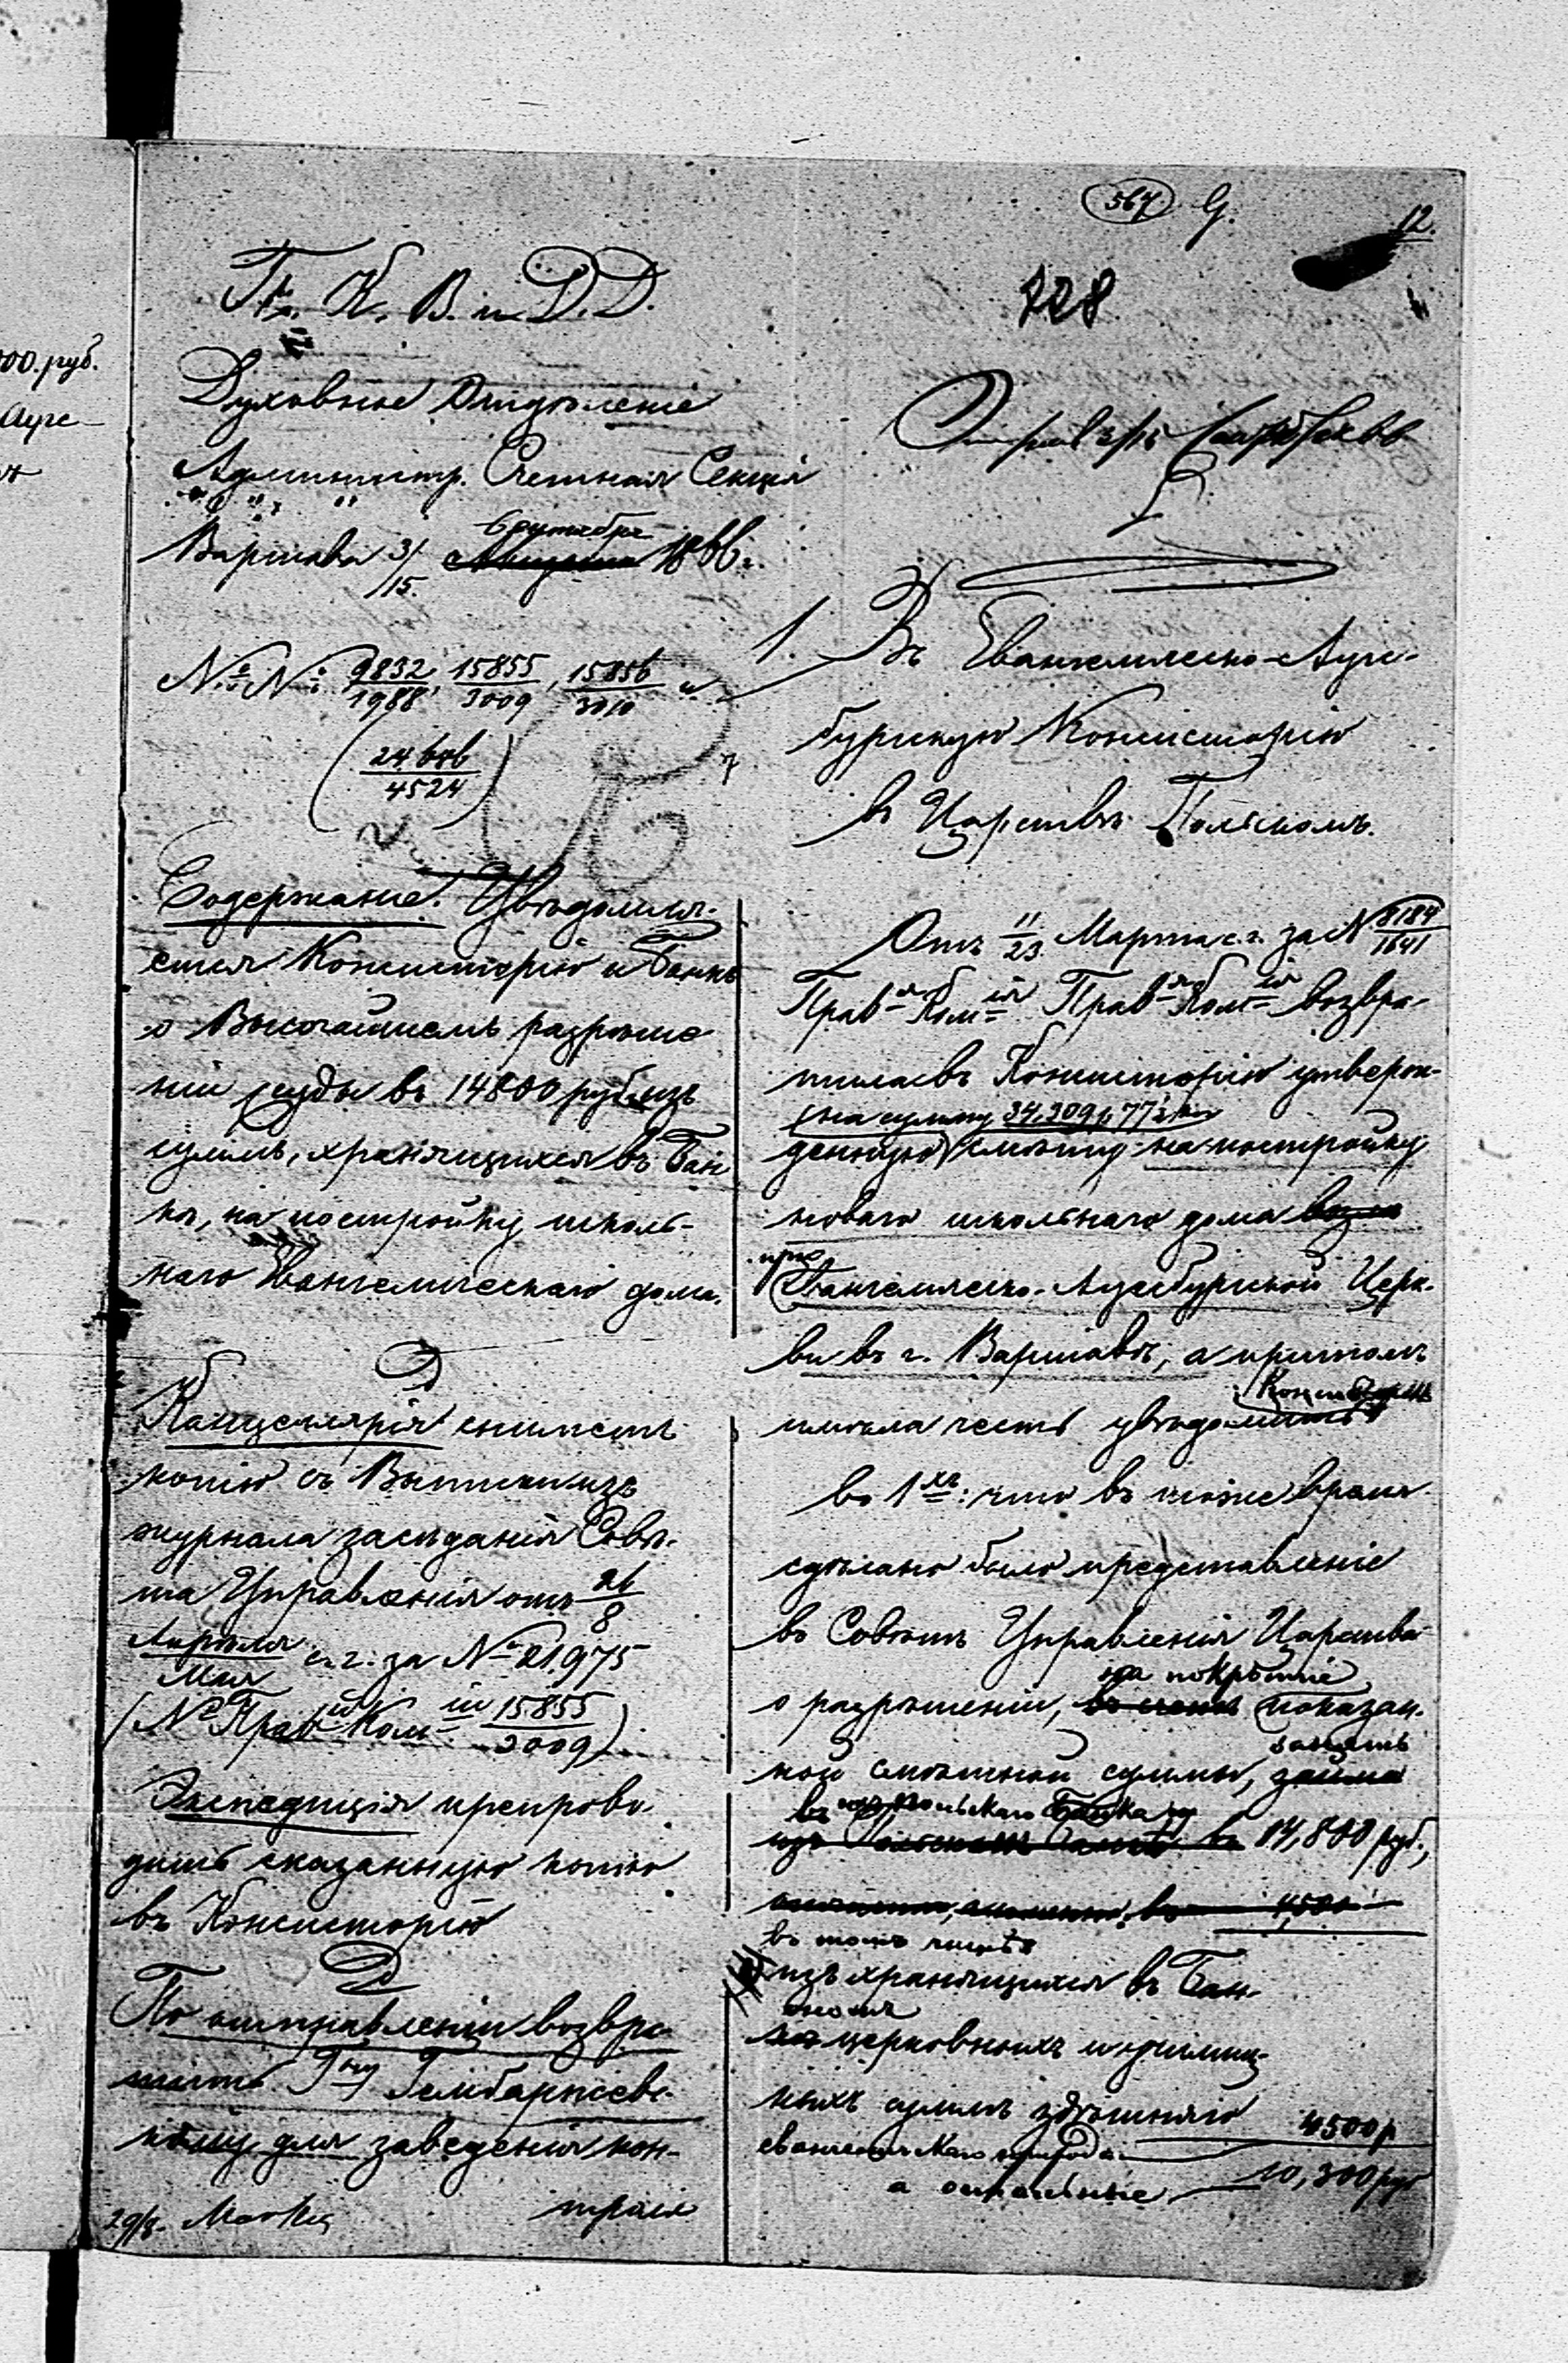 00. руб.
Аугс-
567 G.
12.
728
Пр. К. В. и Д. Д.
Духовное Отдѣленіе
Администр. Счетная Секція
Варшава 3/15. Сентября 1866 г.
№№ 9832/1988, 15855/3009, 15856/3010 и
(24606/4524)
Содержаніе. Увѣдомля-
ется Консисторію и Банкъ
о Высочайшемъ разрѣше-
ніи ссуды въ 14800 руб. изъ
суммъ, хранящихся въ Бан-
кѣ, на постройку школь-
наго Евангелическаго дома.
Канцелярія сниметъ
копію съ Выписки изъ
журнала засѣданія Совѣ-
та Управленія отъ 26/8
Апрѣля/Мая с. г. за № 21,975
(№ Прав-ой Ком-іи 15855/3009)
Экспедиція препрово-
дитъ сказанную копію
въ Консисторію
По отправленіи возвра-
тить Г-ну Гембаржев-
кому для заведенія кон-
троля
29/8.
1. Въ Евангелическо-Аугс-
бургскую Консисторію
въ Царствѣ Польскомъ.
Отъ 11/23 Марта с. г. за № 8184/1641
Прав-ая Ком-ія Прав-ая Ком-ія возвра-
тила въ Консисторію утверж-
(на сумму 34,309 р. 77½ к.
денную) смѣту на постройку
новаго школьнаго дома
при
Евангелическо-Аугсбургской Церк-
ви въ г. Варшавѣ, а притомъ
Консисторію
имѣла честь увѣдомить
во 1хъ: что въ тоже время
сдѣлано было представленіе
въ Совѣтъ Управленія Царства
на покрытіе
о разрѣшеніи, въ счетъ показан-
занять
ной смѣтной суммы, займа
изъ Польскаго Банка 14,800 руб.,
4500
въ томъ числѣ
изъ хранящихся въ Бан-
церковныхъ и училищ-
ныхъ суммъ здѣшняго
евангелическаго прихода 4500 р
а остальные 10,300 руб